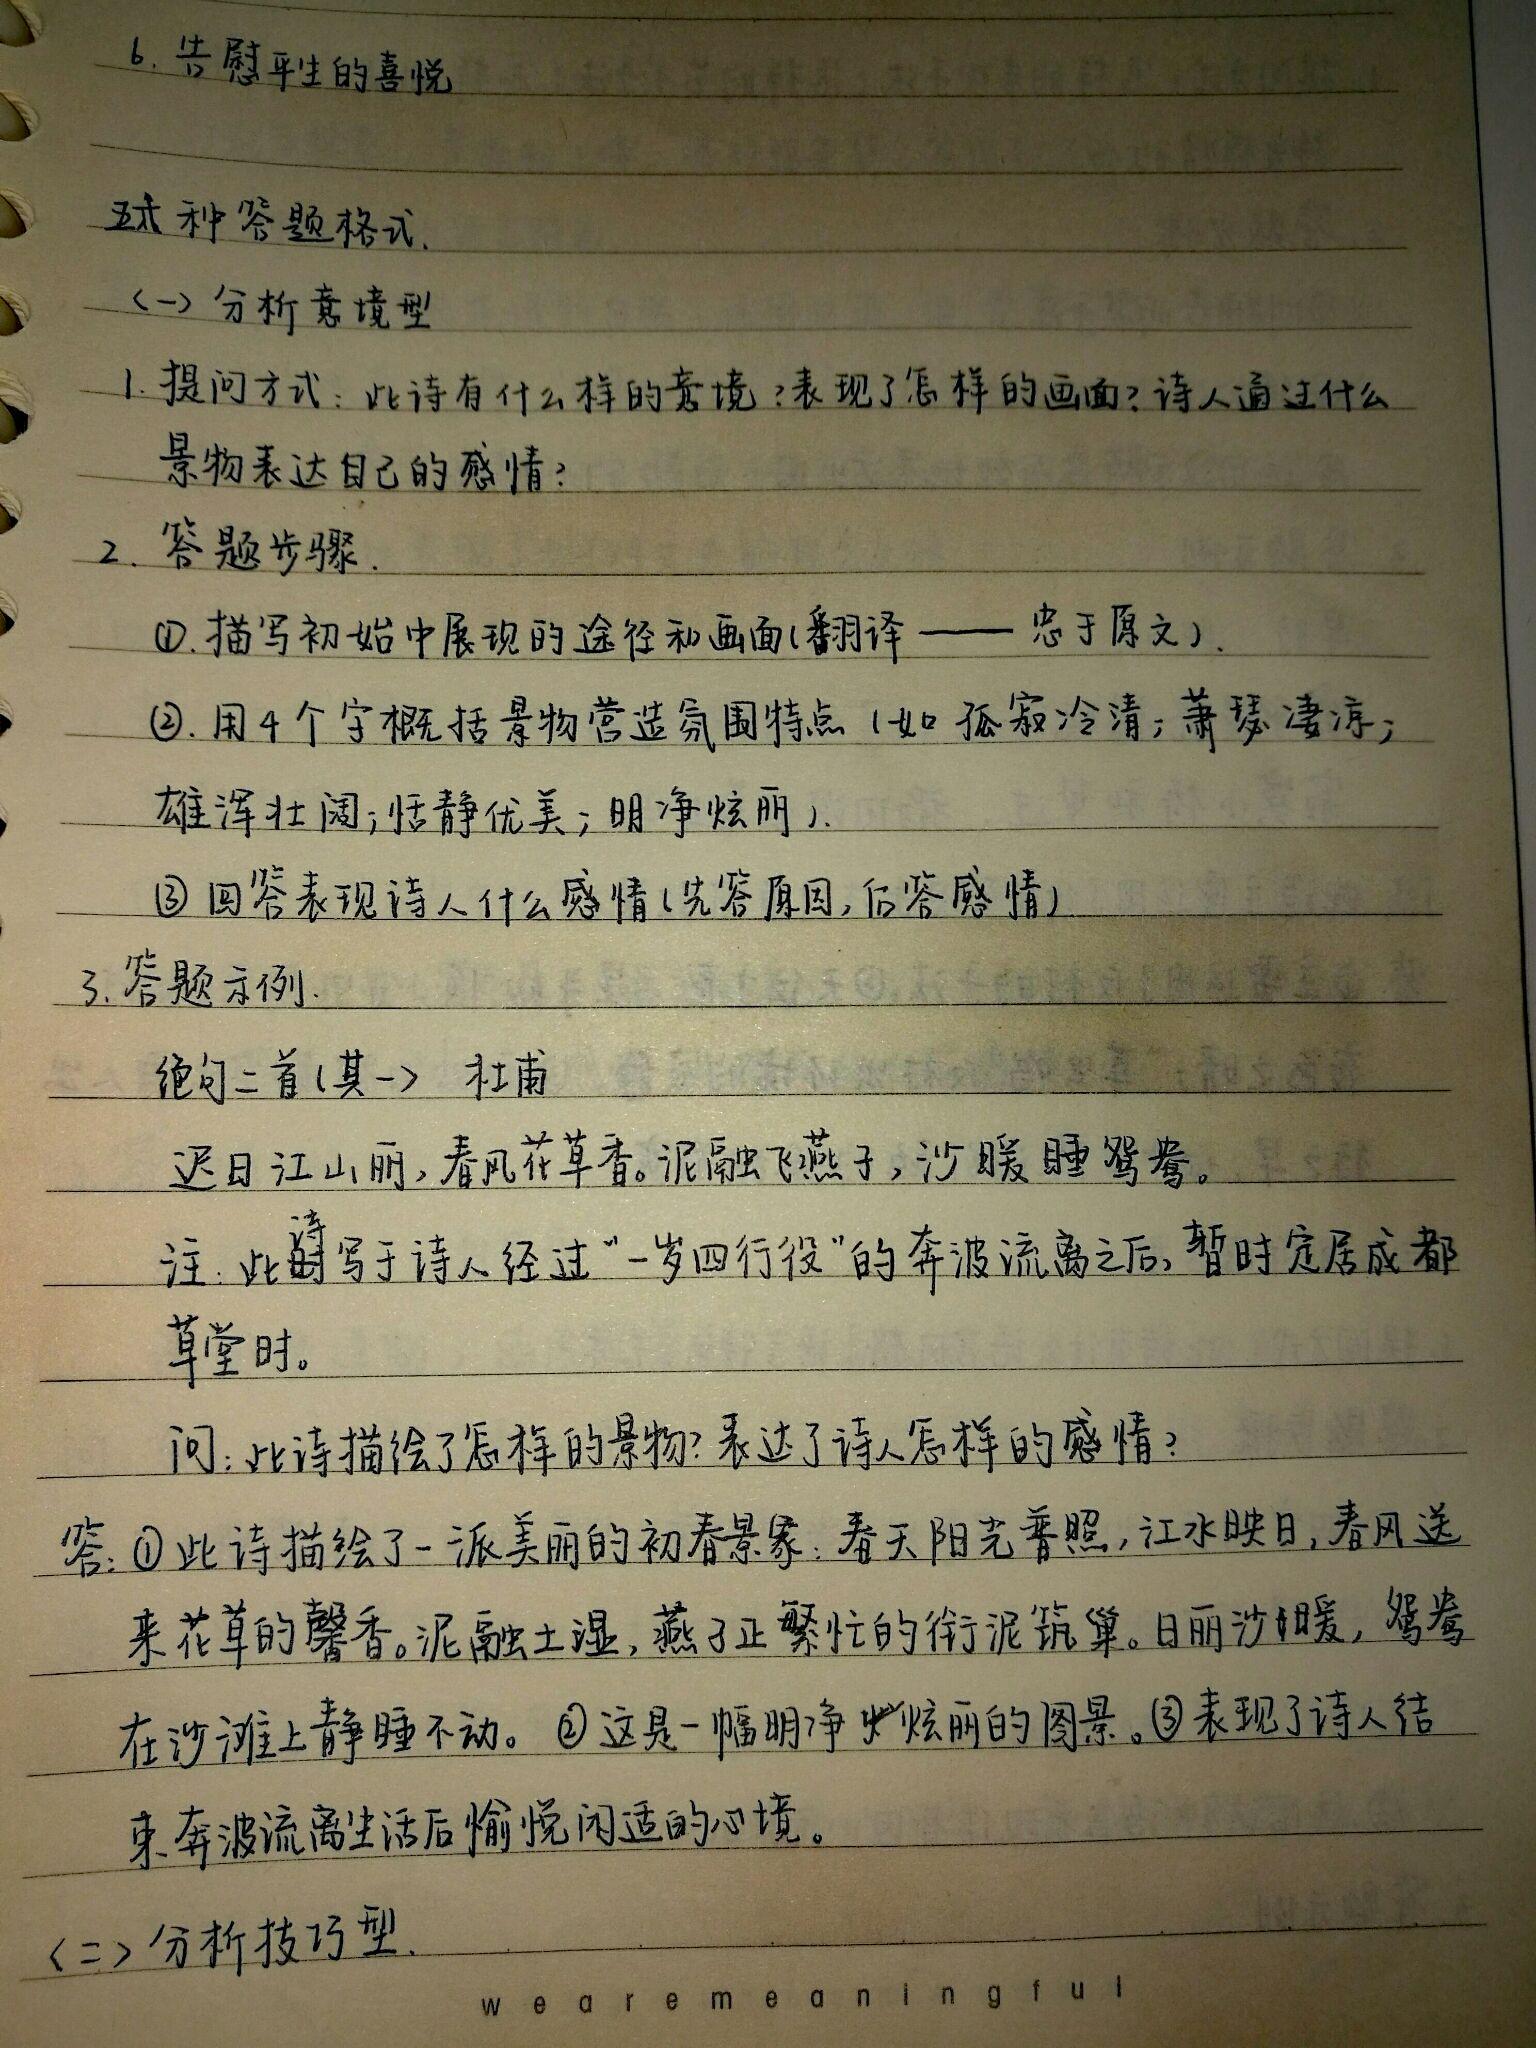 6. 告慰平生的喜悦
五大种答题格式.
(一)分析意境型
1. 提问方式：此诗有什么样的意境？表现了怎样的画面？诗人通过什么
景物表达自己的感情？
2. 答题步骤.
①.描写初始中展现的途径和画面(翻译——忠于原文).
②.用4个字概括景物营造氛围特点(如孤寂冷清；萧瑟凄凉；
雄浑壮阔；恬静优美；明净炫丽).
③回答表现诗人什么感情(先答原因,后答感情)
3. 答题示例.
绝句二首(其一) 杜甫
迟日江山丽,春风花草香。泥融飞燕子,沙暖睡鸳鸯。
注：此诗写于诗人经过“一岁四行役”的奔波流离之后,暂时定居成都
草堂时。
问：此诗描绘了怎样的景物？表达了诗人怎样的感情？
答：①此诗描绘了一派美丽的初春景象：春天阳光普照,江水映日,春风送
来花草的馨香。泥融土湿,燕子正繁忙的衔泥筑巢。日丽沙暖,鸳鸯
在沙滩上静睡不动。②这是一幅明净炫丽的图景。③表现了诗人结
束奔波流离生活后愉悦闲适的心境。
(二)分析技巧型.
wearemeaningful